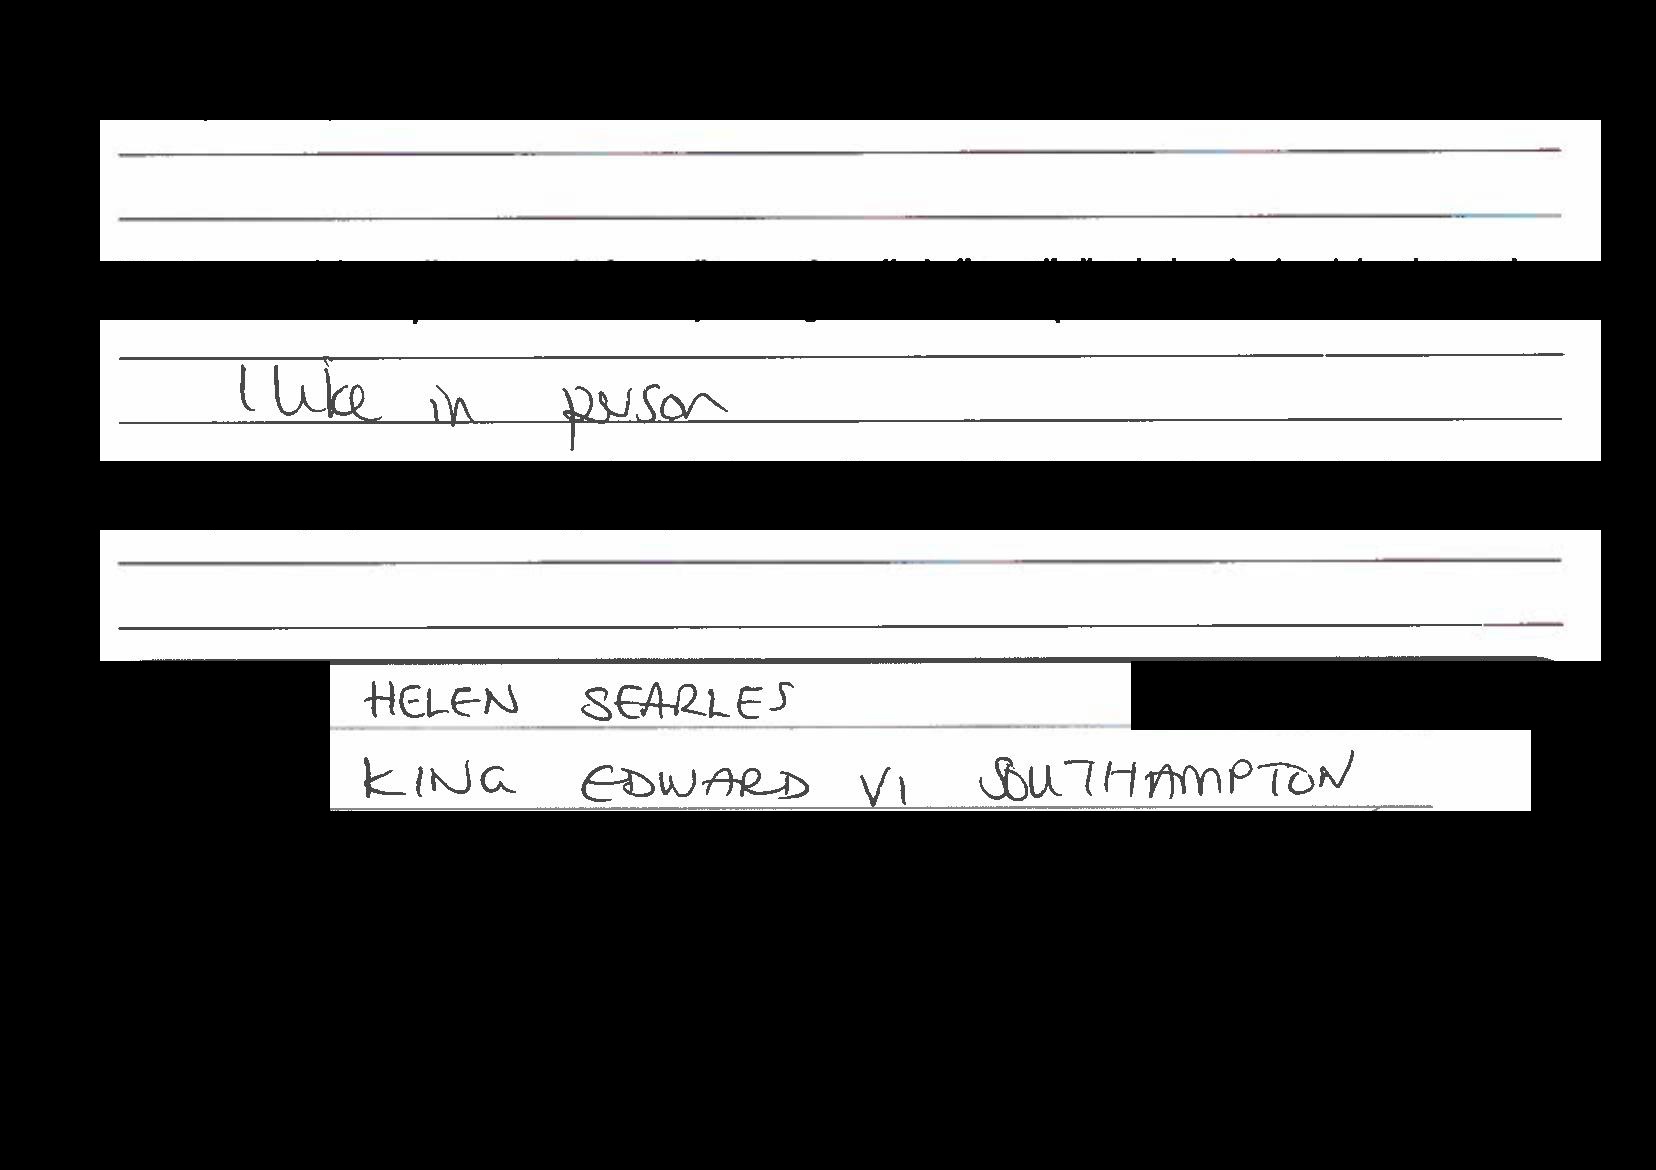 I like in person
HELEN SEARLES
KING EDWARD VI SOUTHAMPTON